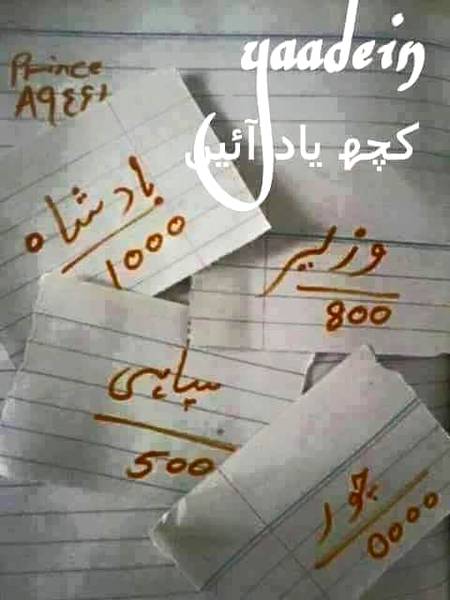 yaadein
Prince
کچھ یاد آئیں
بادشاہ
1000
وزیر
800
سپاہی
500
چور
0000